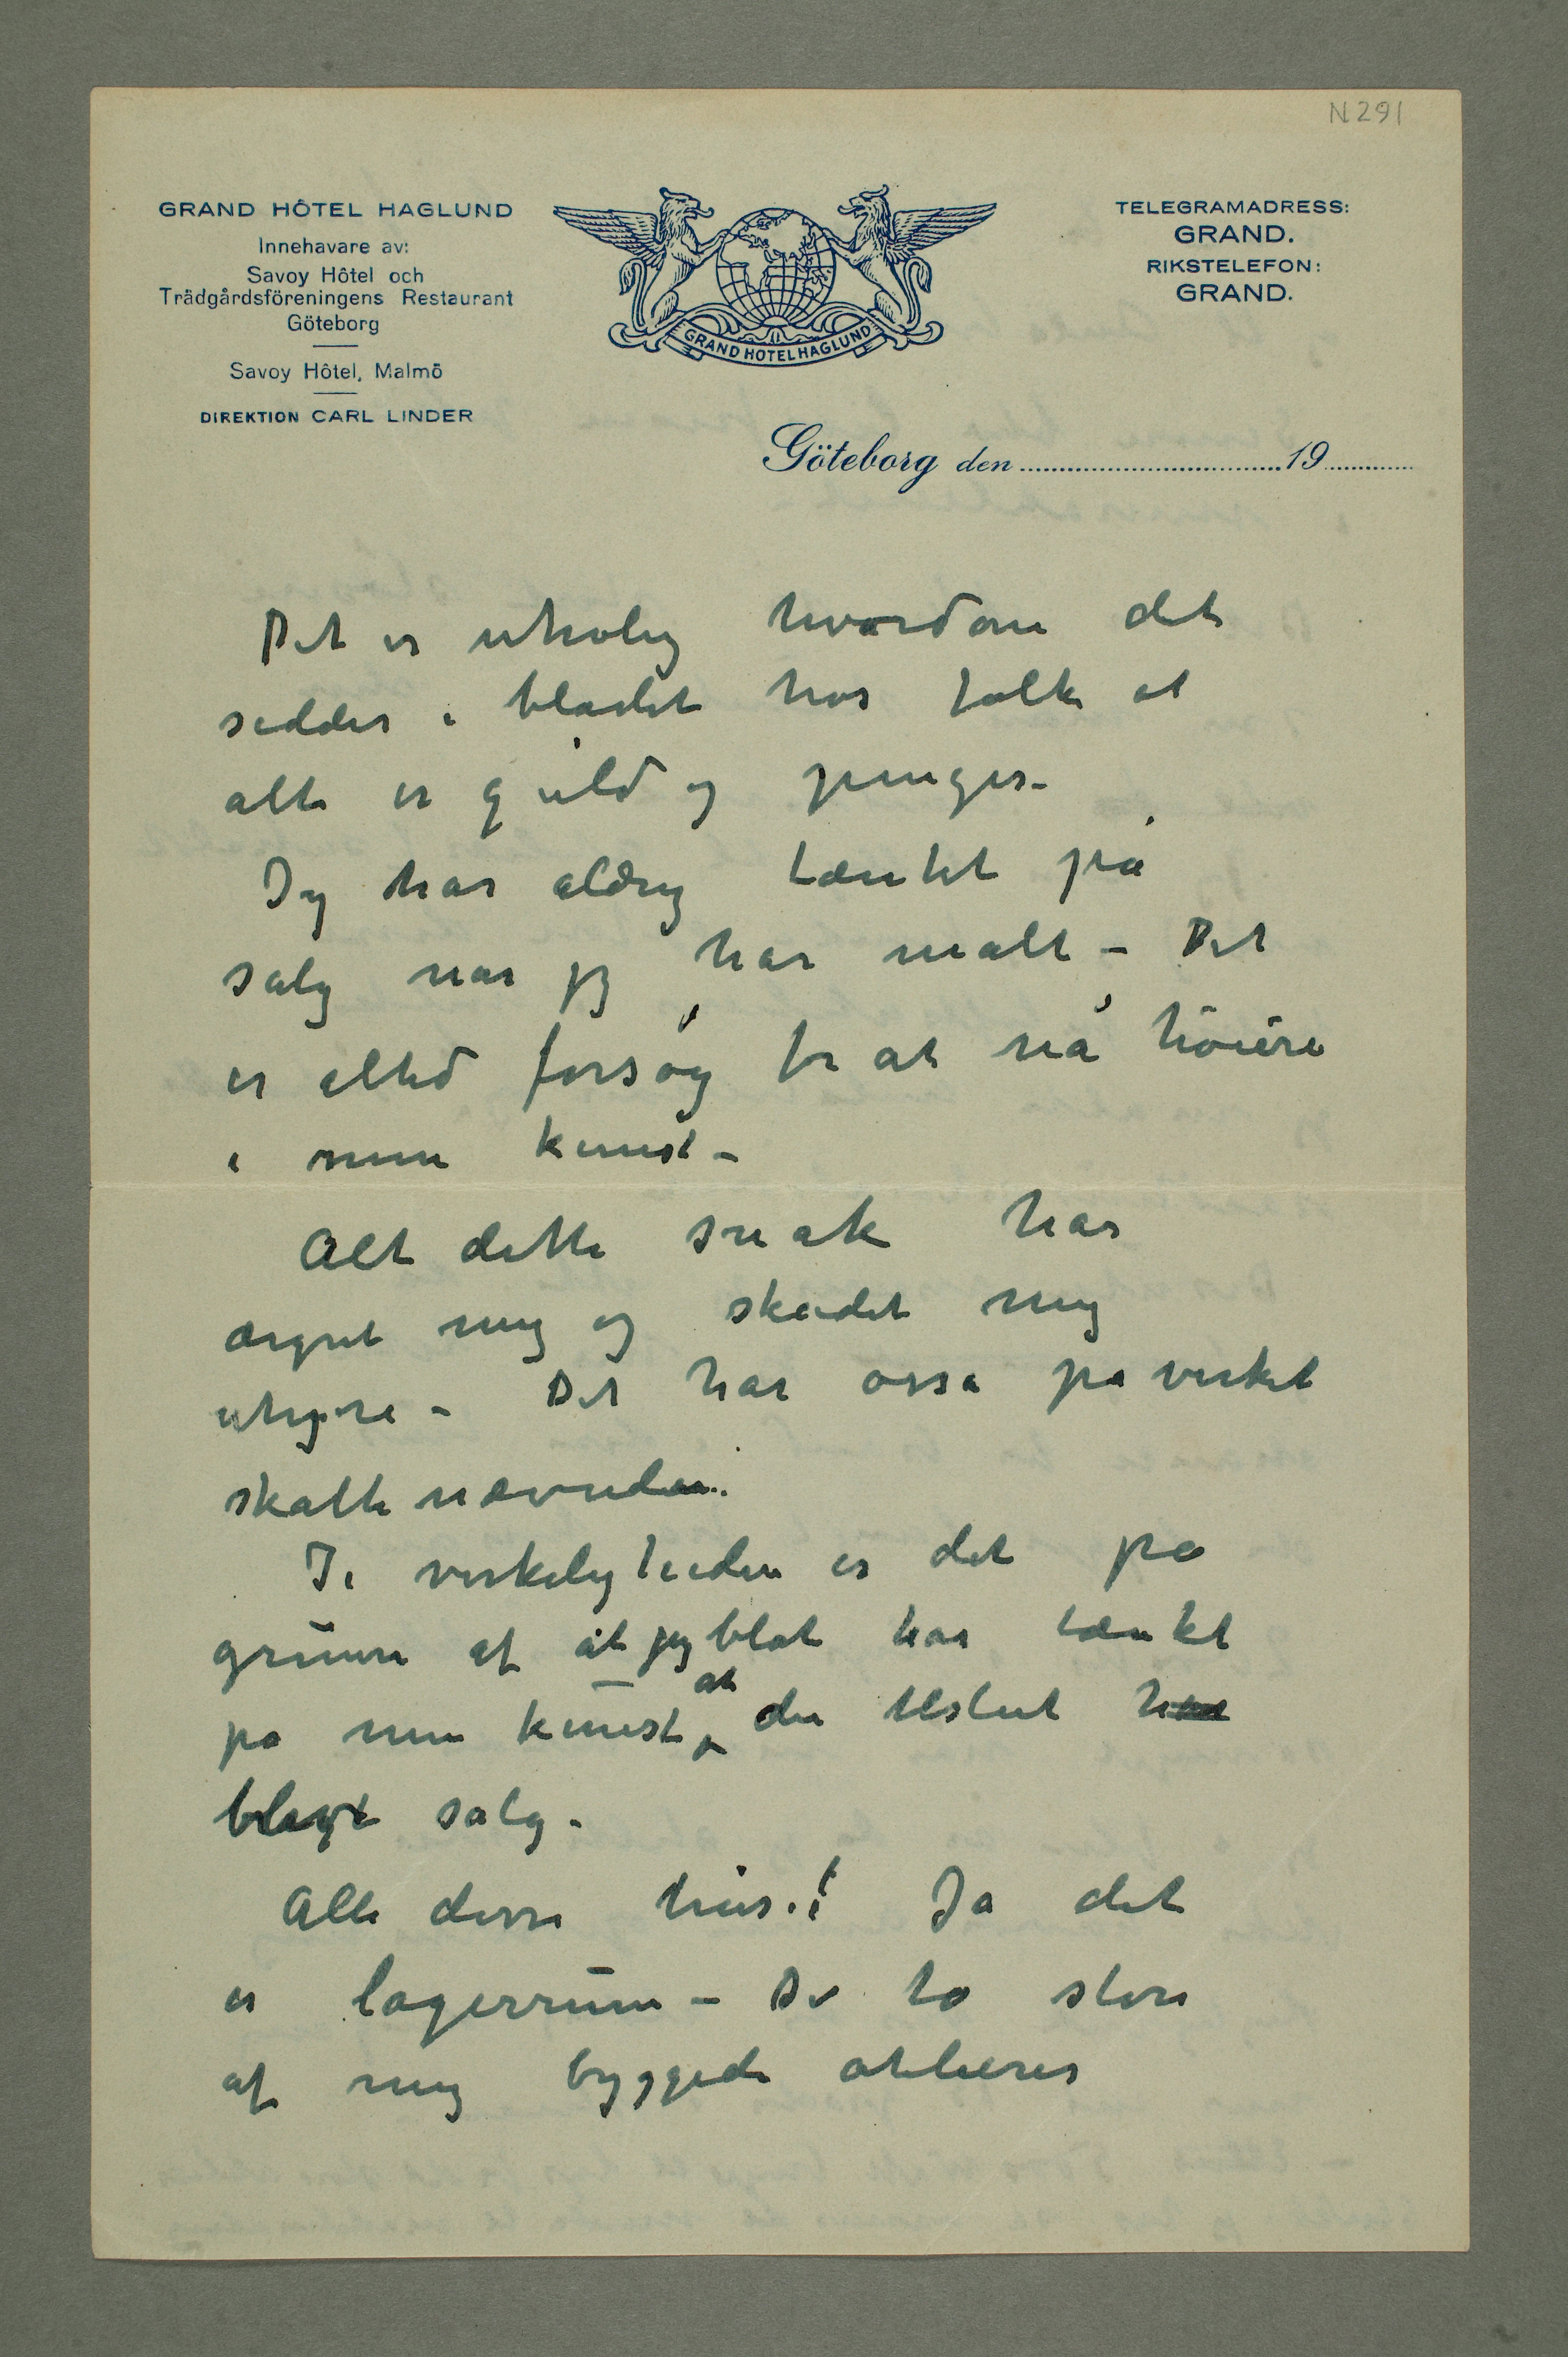 N 291
GRAND HÔTEL HAGLUND
Innehavare av:
Savoy Hôtel och
Trädgårdsföreningens Restaurant
Göteborg
Savoy Hôtel, Malmö
DIREKTION CARL LINDER
GRAND HOTEL HAGLUND
TELEGRAMADRESS:
GRAND.
RIKSTELEFON:
GRAND.
Göteborg den 19
Det er utrolig hvordan det
sidder i blodet hos folk at
alt er guld og penger –
Jeg har aldrig tænkt på
salg når jeg har malt – Det
er altid forsøg for at nå høiere
i min kunst –
Alt dette snak har
ærgret mig og skadet mig
uhyre – Det har osså påvirket
skattenævnden.
I virkeligheden er det på
grunn af at jeg blot har tænkt
på min kunst, at der tilslut
salg –
Alle disse hus.! Ja det
er lagerrum – De to store
af mig byggede atelierer